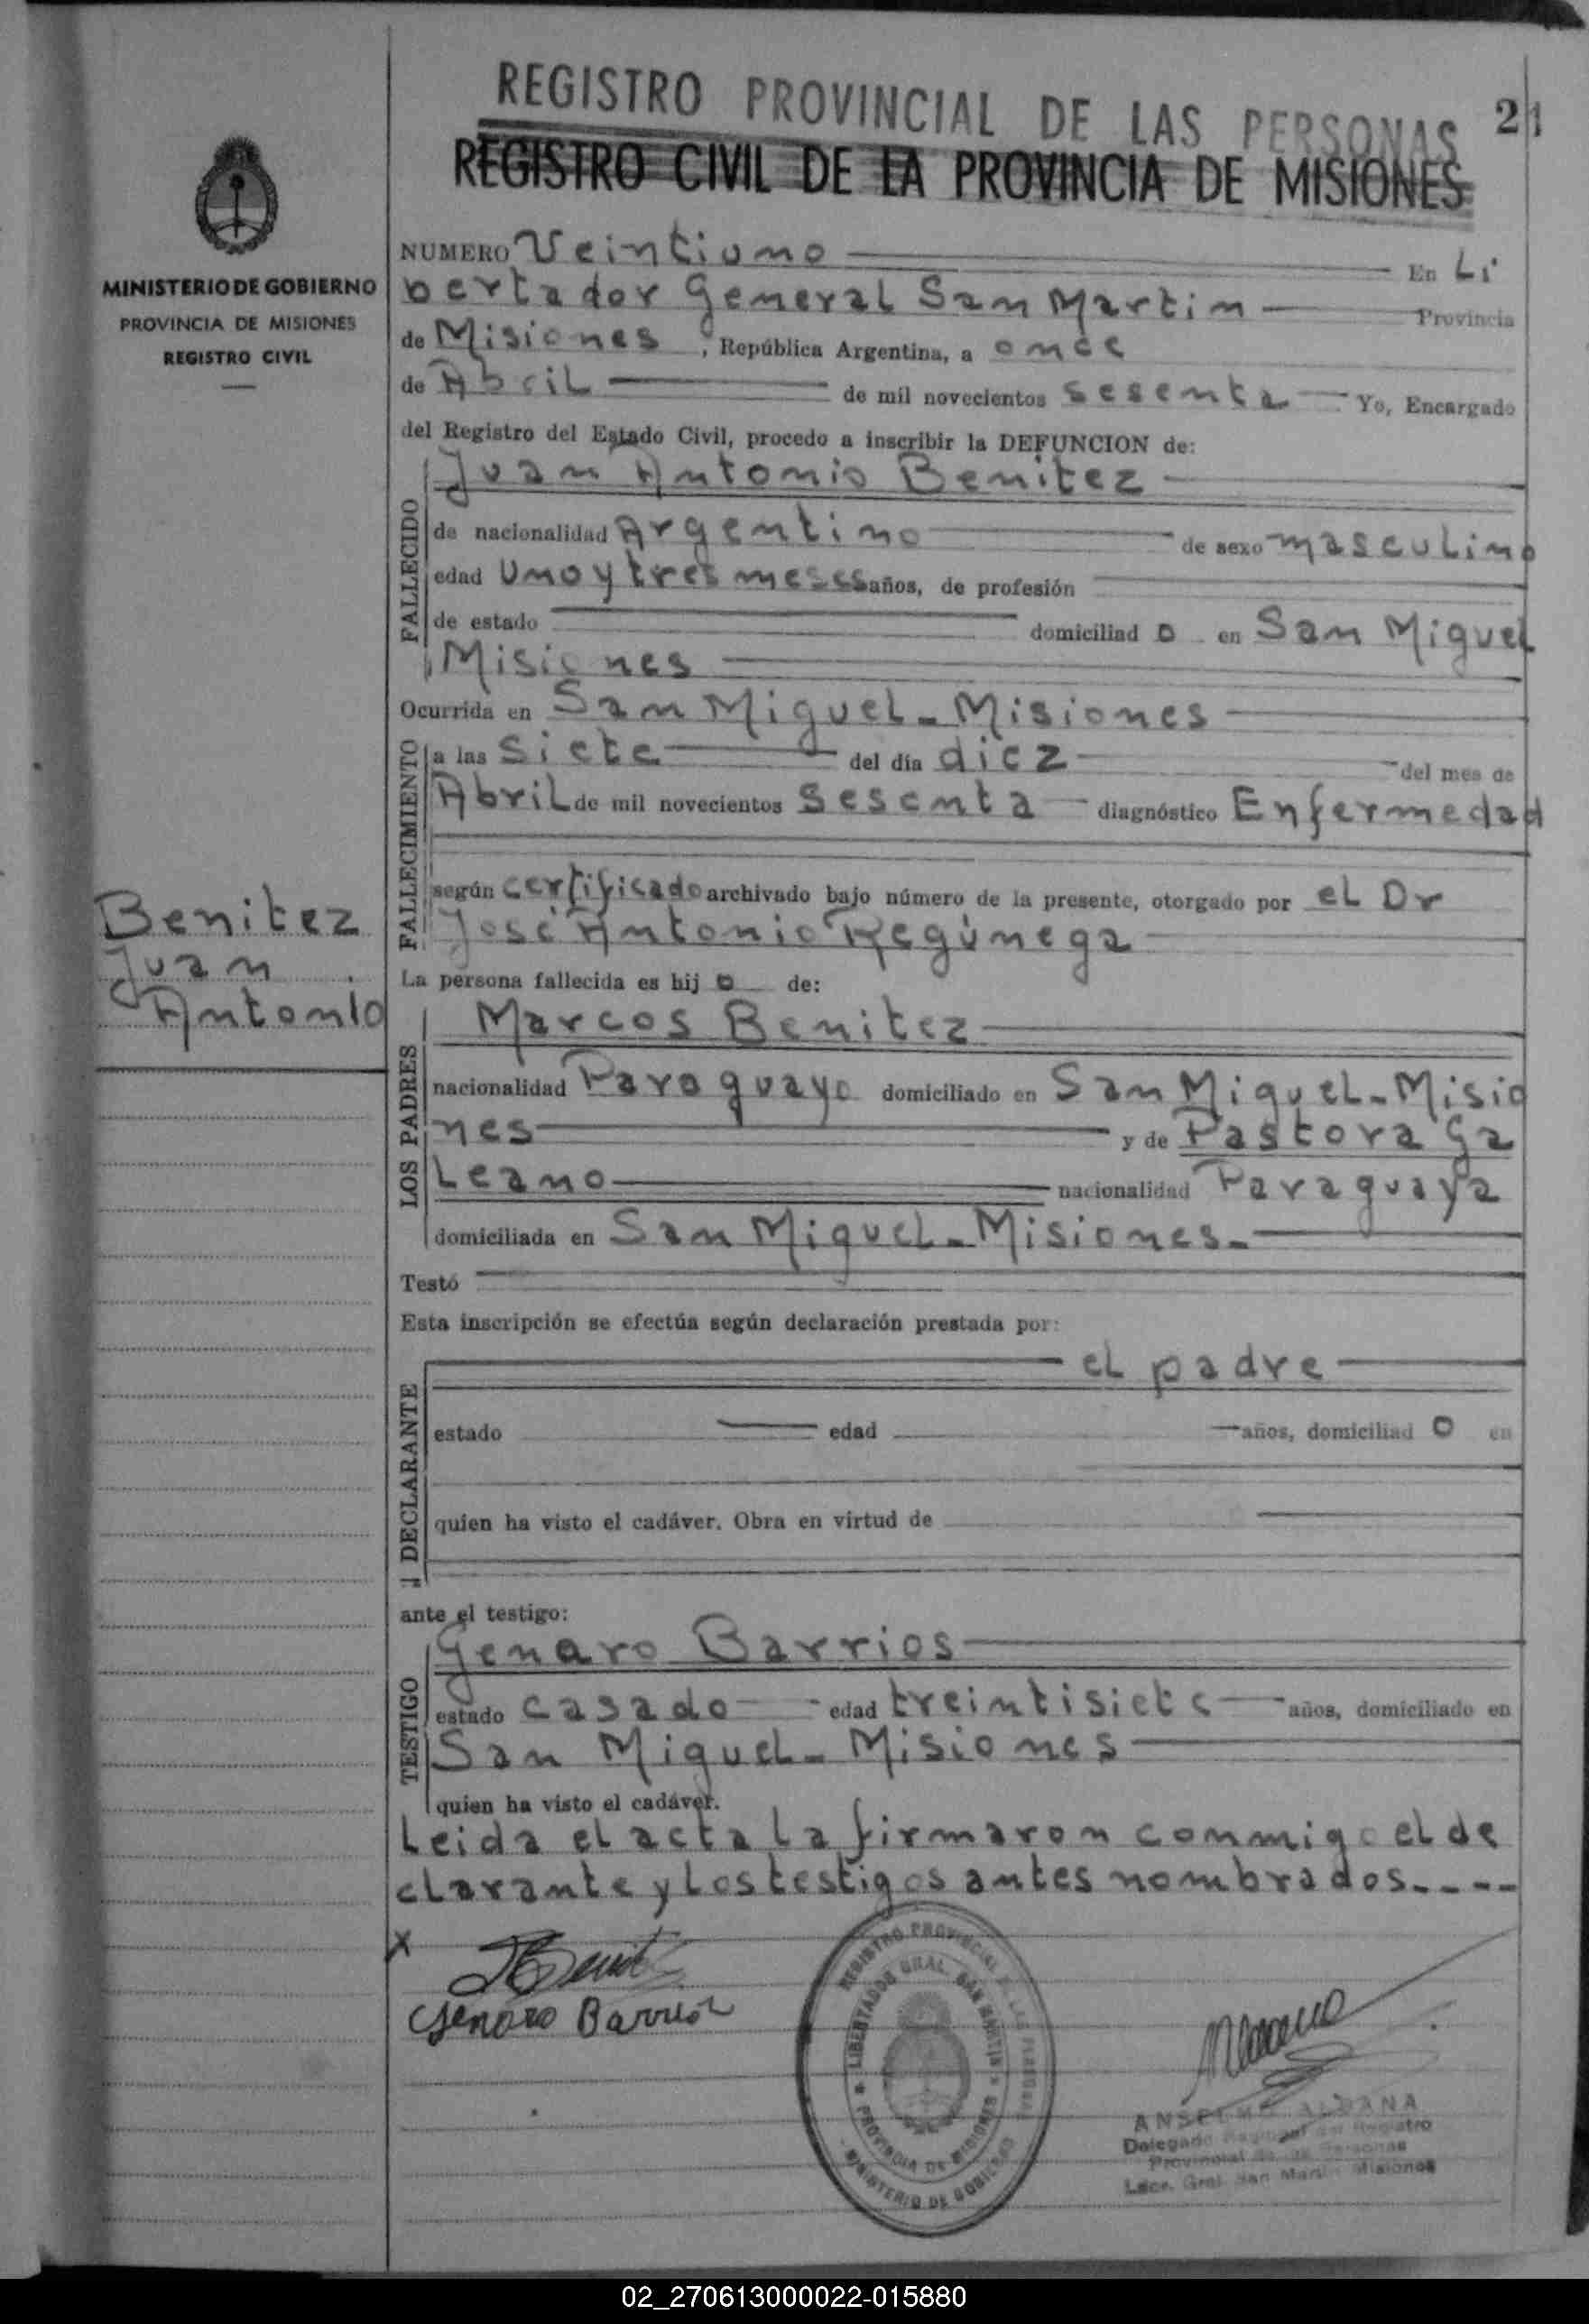 REGISTRO PROVINCIAL DE LAS PERSONAS
21
REGISTRO CIVIL DE LA PROVINCIA DE MISIONES
MINISTERIO DE GOBIERNO
PROVINCIA DE MISIONES
REGISTRO CIVIL
NUMERO Veintiuno En Li
bertador General San Martin Provincia
de Misiones, República Argentina, a once
de Abril de mil novecientos sesenta Yo, Encargado
del Registro del Estado Civil, procedo a inscribir la DEFUNCION de:
FALLECIDO
Juan Antonio Benitez
de nacionalidad Argentino de sexo masculino
edad Uno y tres meses años, de profesión
de estado domiciliad o en San Miguel
Misiones
Ocurrida en San Miguel - Misiones
FALLECIMIENTO
a las Siete del día diez del mes de
Abril de mil novecientos Sesenta diagnóstico Enfermedad
según certificado archivado bajo número de la presente, otorgado por el Dr
José Antonio Regúnega
Benitez
Juan
Antonio
La persona fallecida es hij o de:
LOS PADRES
Marcos Benitez
nacionalidad Paraguayo domiciliado en San Miguel - Misio
nes y de Pastora Ga
leano nacionalidad Paraguaya
domiciliada en San Miguel - Misiones.-
Testó
Esta inscripción se efectúa según declaración prestada por:
DECLARANTE
el padre
estado edad años, domiciliad o en
quien ha visto el cadáver. Obra en virtud de
ante el testigo:
TESTIGO
Genaro Barrios
estado casado edad treintisiete años, domiciliado en
San Miguel - Misiones
quien ha visto el cadáver.
Leida el acta la firmaron conmigo el de
clarante y los testigos antes nombrados.----
X
Genaro Barrios
REGISTRO PROVINCIAL DE LAS PERSONAS
LIBERTADOR GRAL. SAN MARTIN
PROVINCIA DE MISIONES
MINISTERIO DE GOBIERNO
ANSELMO ALDANA
Delegado Regional del Registro
Provincial de las Personas
Ldor. Gral. San Martín Misiones
02_270613000022-015880